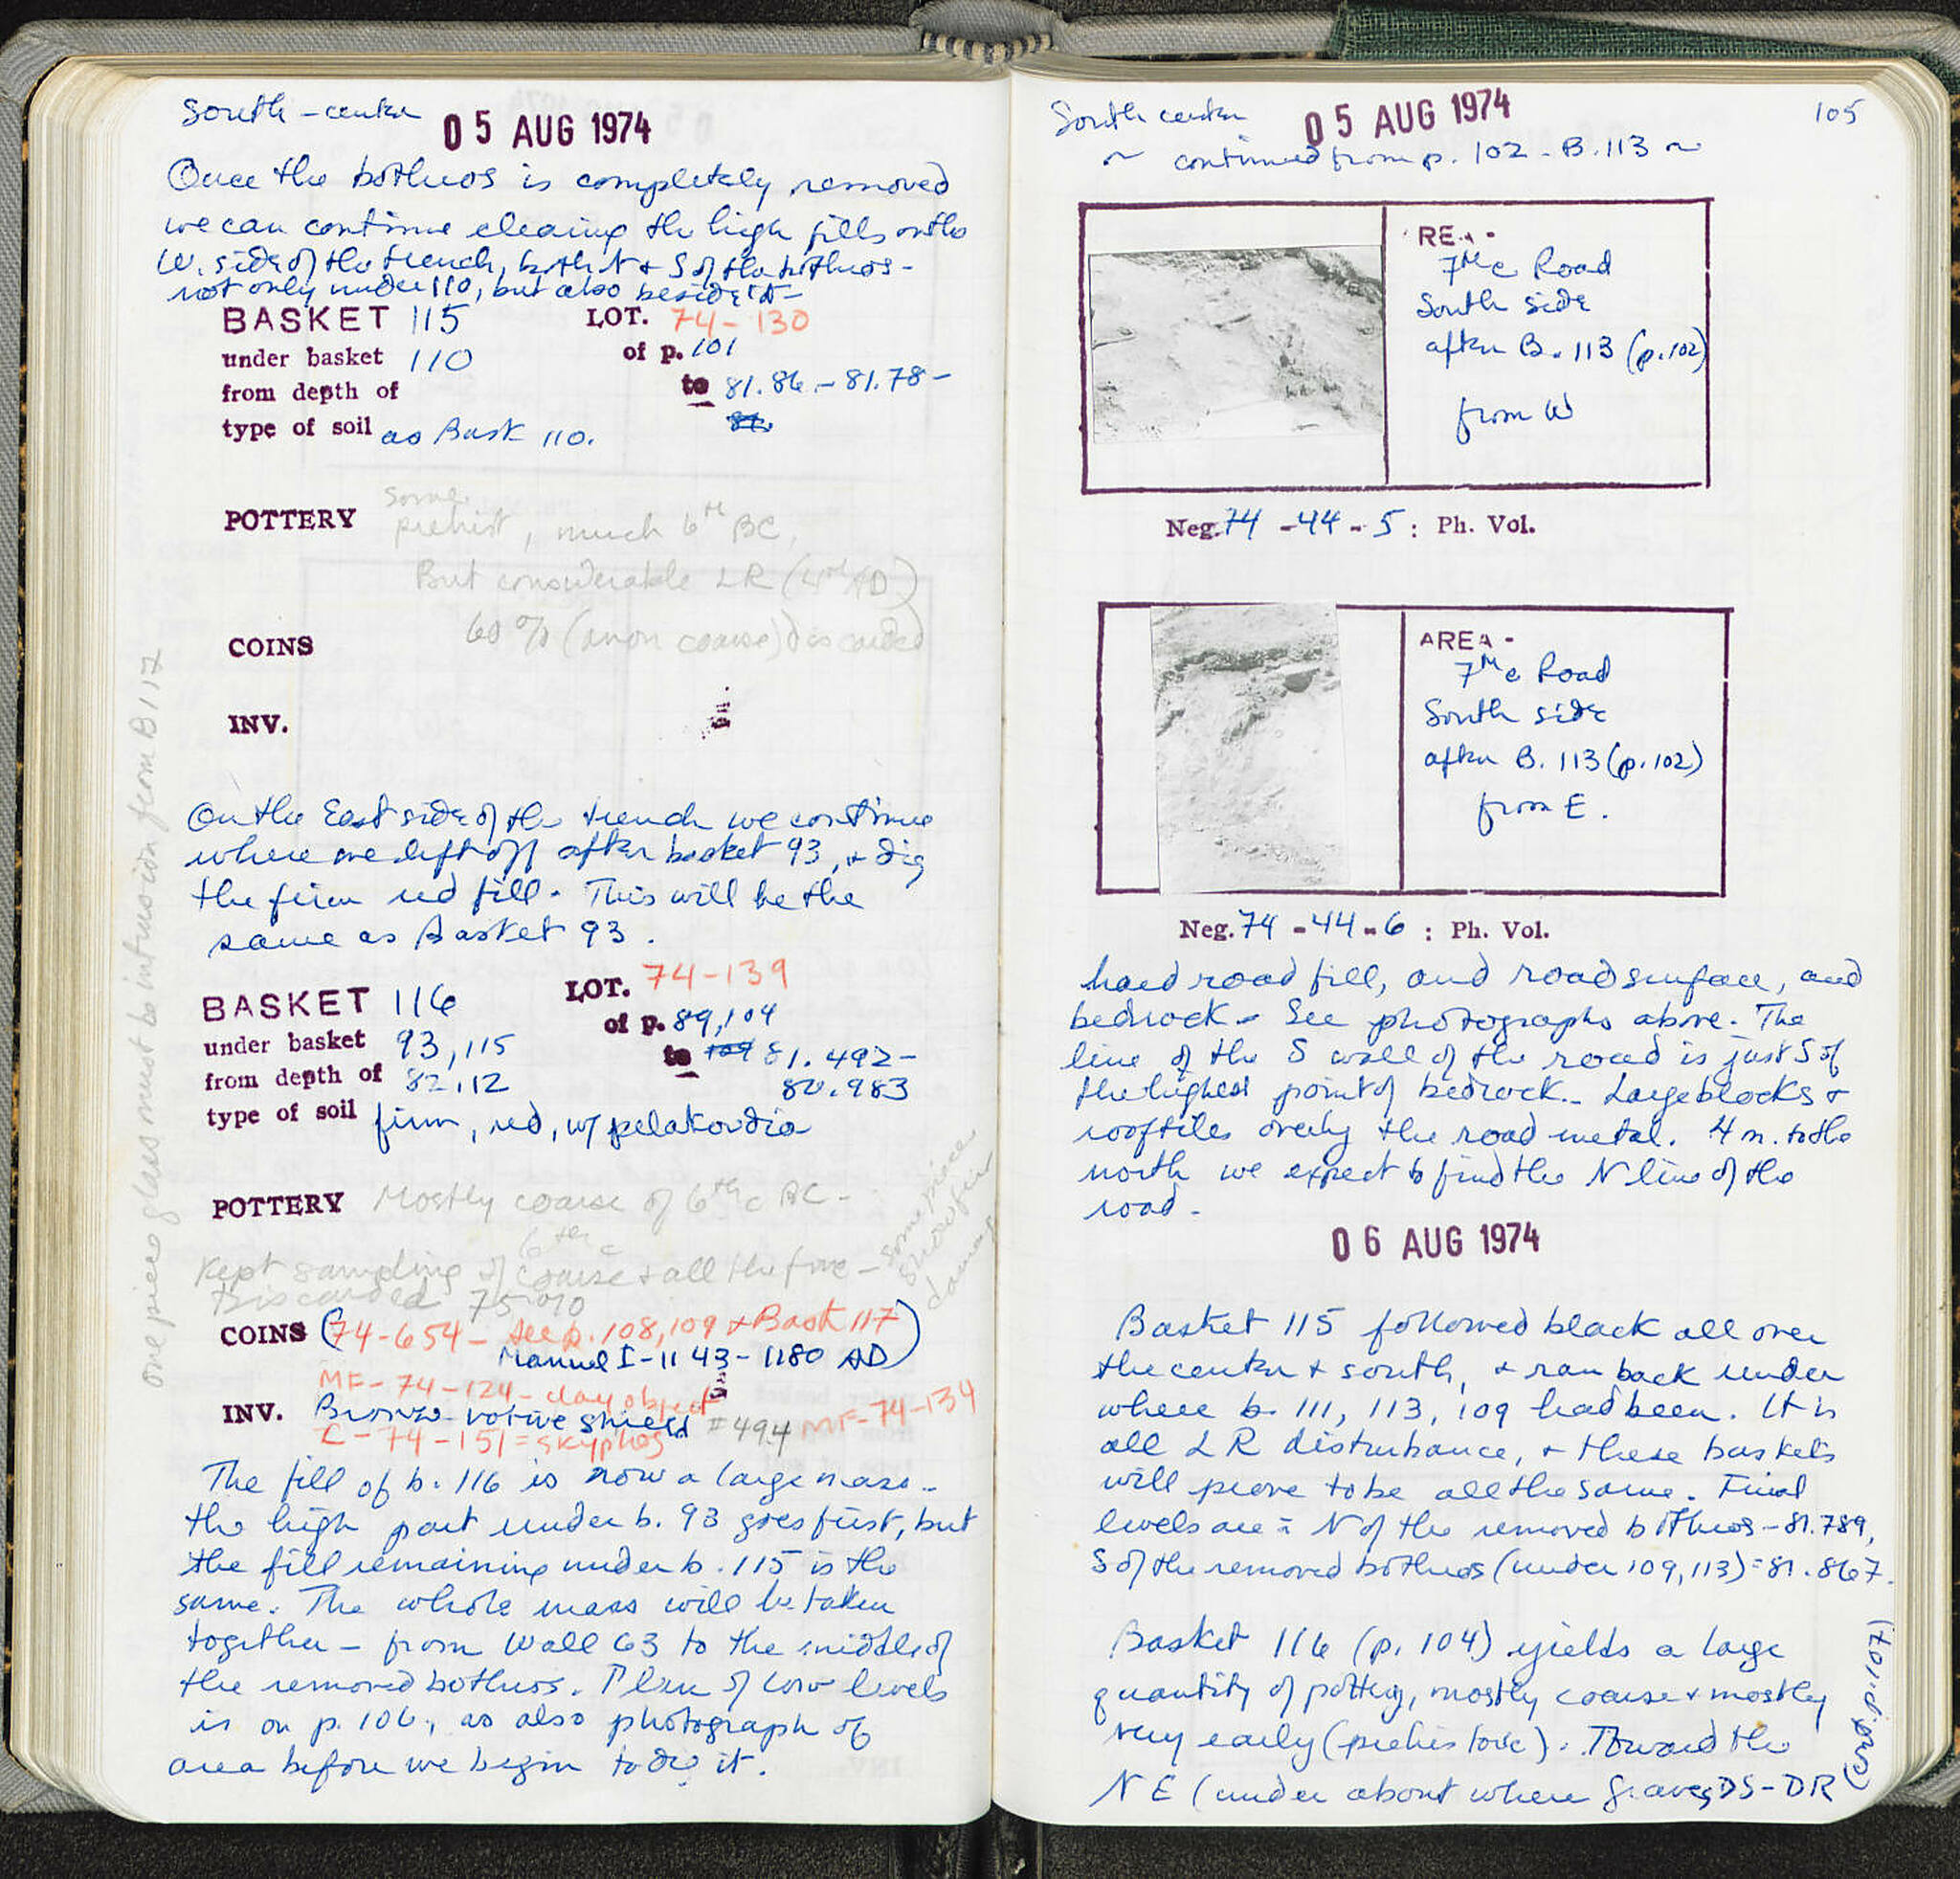 South-center
05 AUG 1974
Once the bothros is completely removed
we can continue clearing the high fills on the
W. side of the trench, both N + S of the bothros -
not only under 110, but also beside it -
BASKET 115 LOT. 74-130
under basket 110 of p. 101
from depth of to 81.86 - 81.78 -
type of soil as Bask 110.
POTTERY some
prehist, much 6th BC,
But considerable LR (4th AD)
60% (anon coarse) discarded
COINS
INV.
On the East side of the trench we continue
where we left off after basket 93, + dig
the firm red fill. This will be the
same as Basket 93.
BASKET 116 LOT. 74-139
under basket 93, 115 of p. 89, 104
from depth of 82.112 to 81.492 -
80.983
type of soil firm, red, w/ pelakoudia
POTTERY Mostly coarse of 6th c BC -
6th c
Kept sampling of coarse + all the fine -
some pieces
show fire
damage
Discarded 75%
COINS (74-654 - see p. 108, 109 + Bask 117
Manuel I - 1143-1180 AD)
MF-74-124 - clay object
INV. Bronze votive shield #494 MF-74-134
C-74-151 = skyphos
The fill of b. 116 is now a large mass -
the high part under b. 93 goes first, but
the fill remaining under b. 115 is the
same. The whole mass will be taken
together - from Wall 63 to the middle of
the removed bothros. Plan of low levels
is on p. 106, as also photograph of
area before we begin to dig it.
one piece glass must be intrusion from B 117
South center
05 AUG 1974
105
~ continued from p. 102 - B. 113 ~
REA -
7th c Road
South side
after B. 113 (p. 102)
from W
Neg. 74 - 44 - 5 : Ph. Vol.
AREA -
7th c Road
South side
after B. 113 (p. 102)
from E.
Neg. 74 - 44 - 6 : Ph. Vol.
hard road fill, and road surface, and
bedrock - See photographs above. The
line of the S wall of the road is just S of
the highest point of bedrock. Large blocks +
rooftiles overly the road metal. 4 m. to the
north we expect to find the N line of the
road -
06 AUG 1974
Basket 115 followed black all over
the center + south, + ran back under
where b. 111, 113, 109 had been. It is
all LR disturbance, + these baskets
will prove to be all the same. Final
levels are = N of the removed bothros - 81.789,
S of the removed bothros (under 109, 113) = 81.867.
Basket 116 (p. 104) yields a large
quantity of pottery, mostly coarse + mostly
very early (prehistoric). Toward the
NE (under about where graves DS-DR
(cont. p. 107)